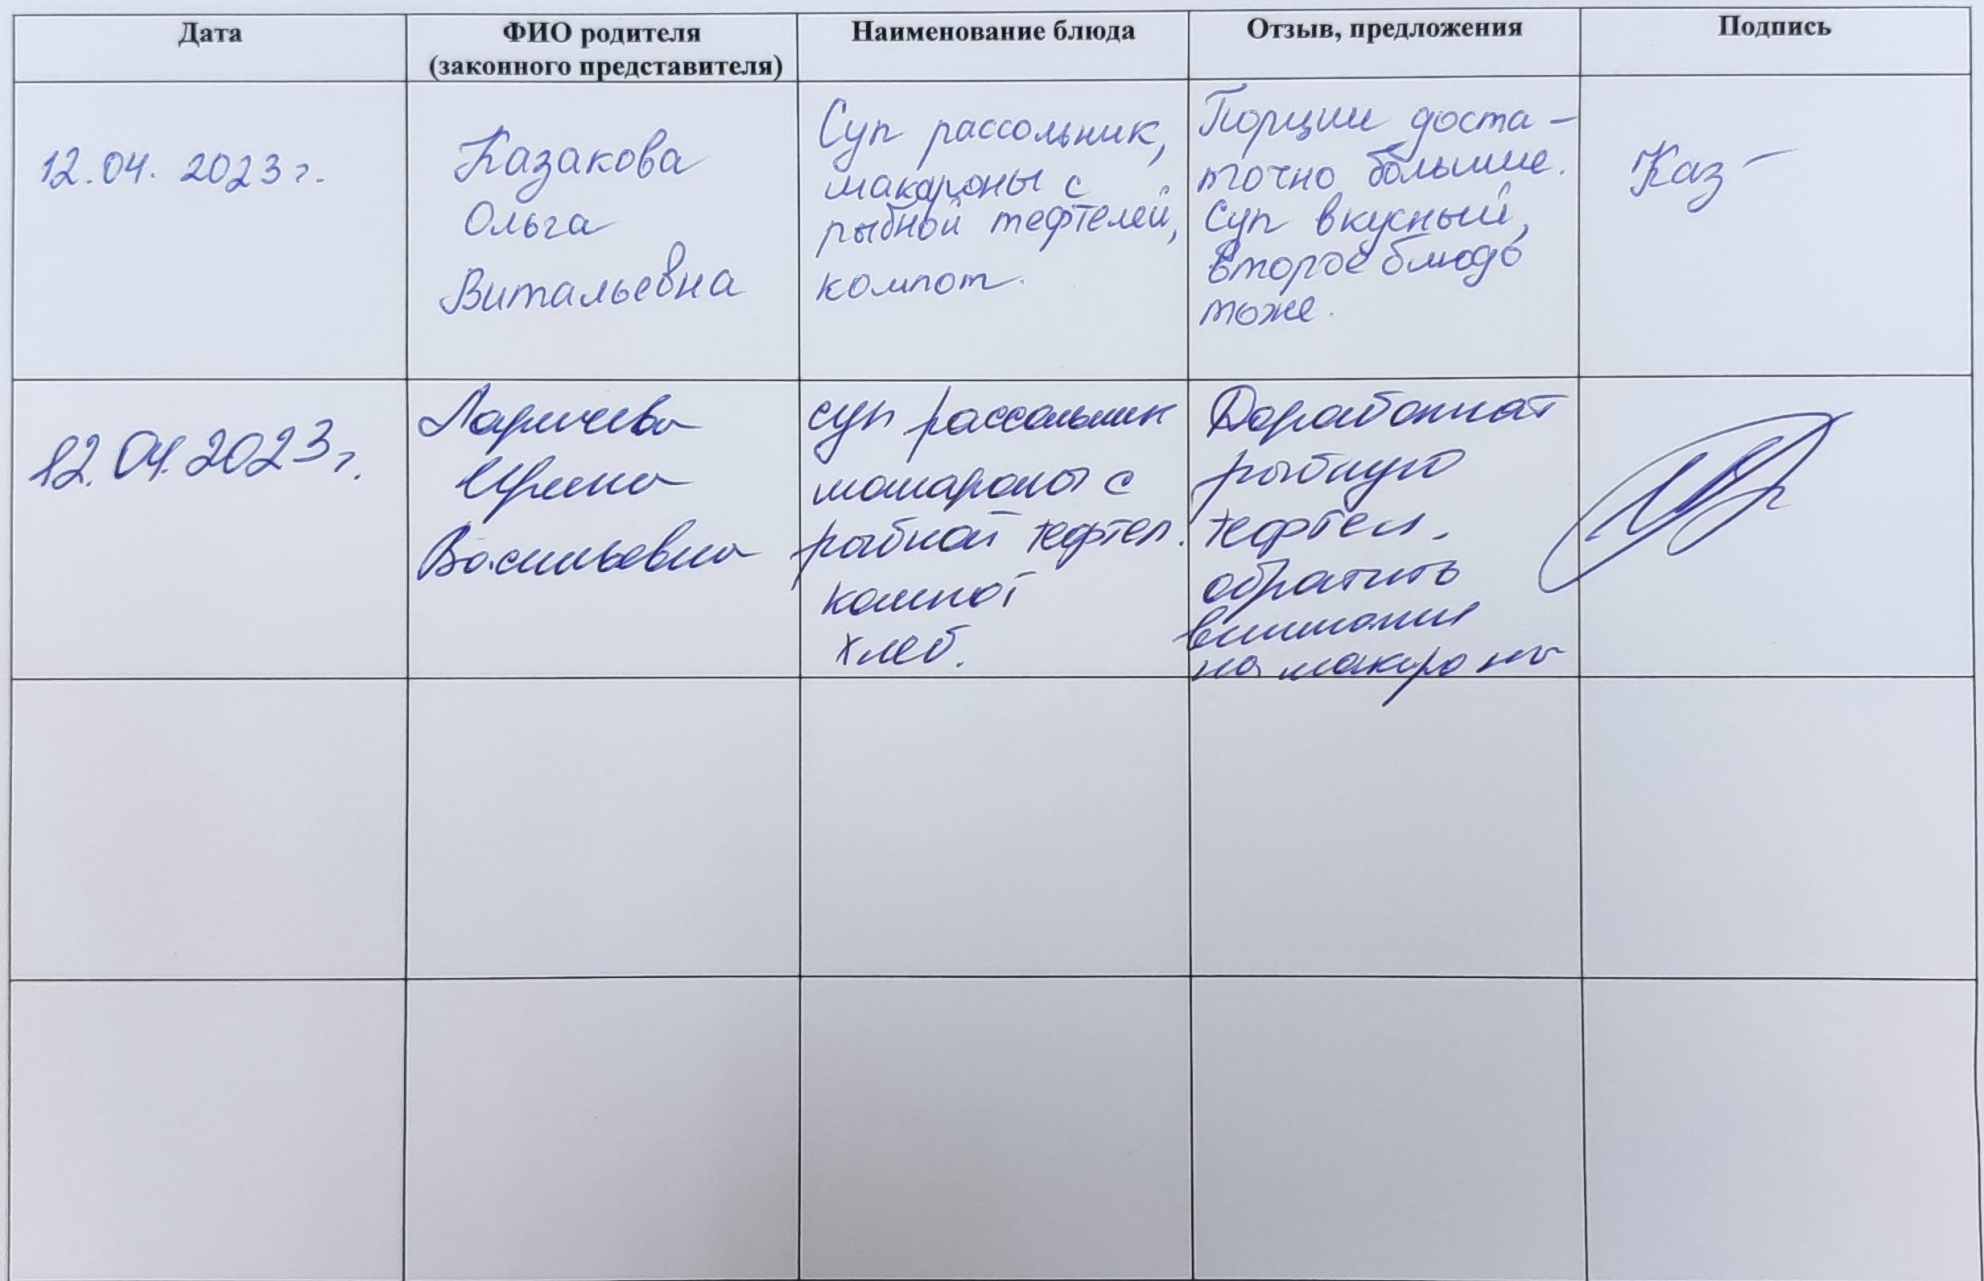 Дата
ФИО родителя
(законного представителя)
Наименование блюда
Отзыв, предложения
Подпись
12.04. 2023 г.
Казакова
Ольга
Витальевна
Суп рассольник,
макароны с
рыбной тефтелей,
компот.
Порции доста-
точно большие.
Суп вкусный,
второе блюдо
тоже.
Каз
12.04.2023 г.
Ларичева
Ирина
Васильевна
суп рассольник
макароны с
рыбной тефтел.
компот
хлеб.
рыбную
тефтел.
обратить
внимание
на макароны